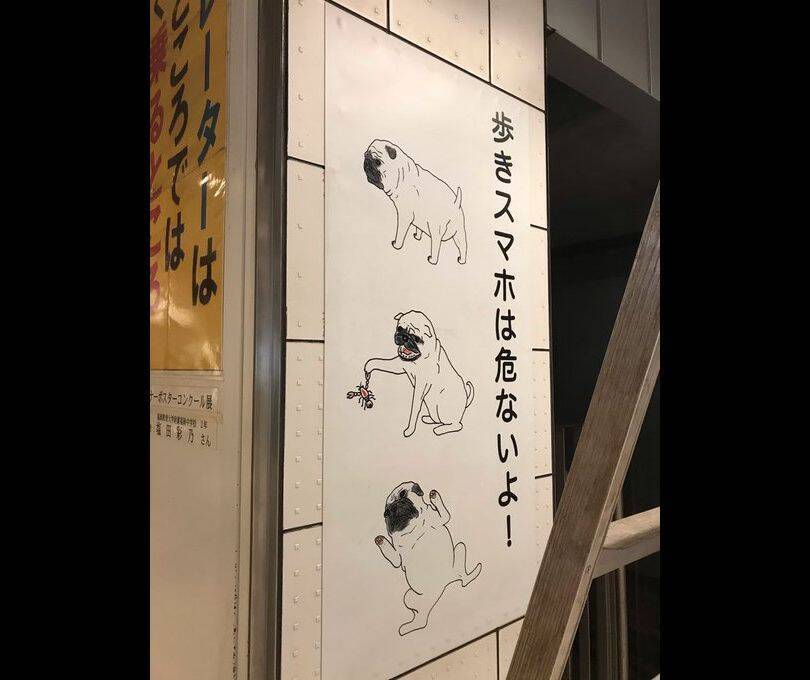 歩きスマホは危ないよ！
レーターは
ところでは
く乗るところ
ーポスターコンクール展
塩田 彩乃 さん